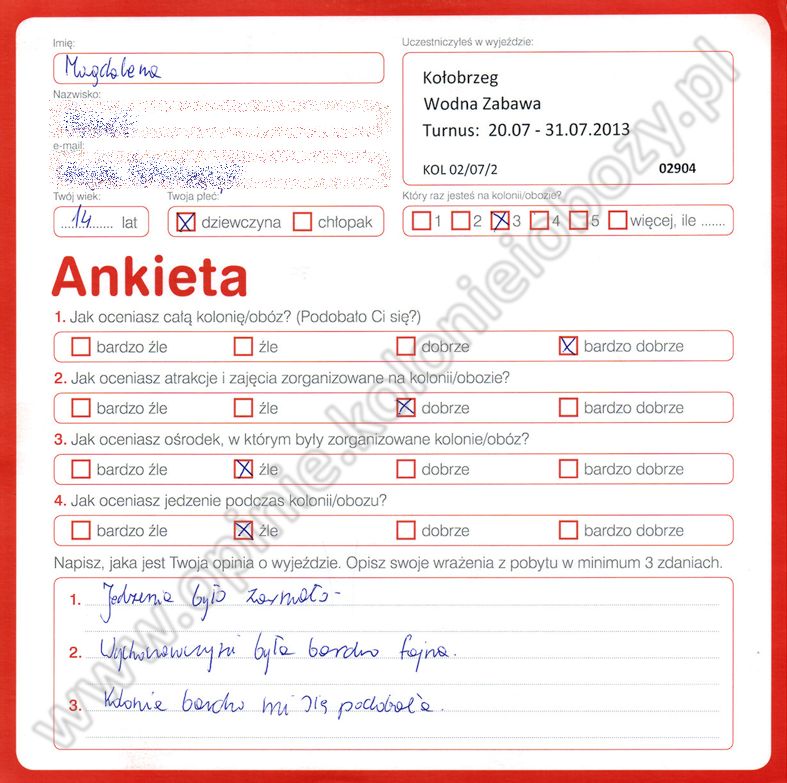 Imię:
Magdalena
Nazwisko:
e-mail:
Twój wiek:
14 lat
Twoja płeć:
dziewczyna chłopak
Uczestniczyłeś w wyjeździe:
Kołobrzeg
Wodna Zabawa
Turnus: 20.07 - 31.07.2013
KOL 02/07/2 02904
Który raz jesteś na kolonii/obozie?
1 2 3 4 5 więcej, ile .......
Ankieta
1. Jak oceniasz całą kolonię/obóz? (Podobało Ci się?)
bardzo źle źle dobrze bardzo dobrze
2. Jak oceniasz atrakcje i zajęcia zorganizowane na kolonii/obozie?
bardzo źle źle dobrze bardzo dobrze
3. Jak oceniasz ośrodek, w którym były zorganizowane kolonie/obóz?
bardzo źle źle dobrze bardzo dobrze
4. Jak oceniasz jedzenie podczas kolonii/obozu?
bardzo źle źle dobrze bardzo dobrze
Napisz, jaka jest Twoja opinia o wyjeździe. Opisz swoje wrażenia z pobytu w minimum 3 zdaniach.
1. Jedzenia było zamało
2. Wychowawczyni była bardzo fajna.
3. Kolonia bardzo mi się podobała.
www.opinie.kolonieiobozy.pl